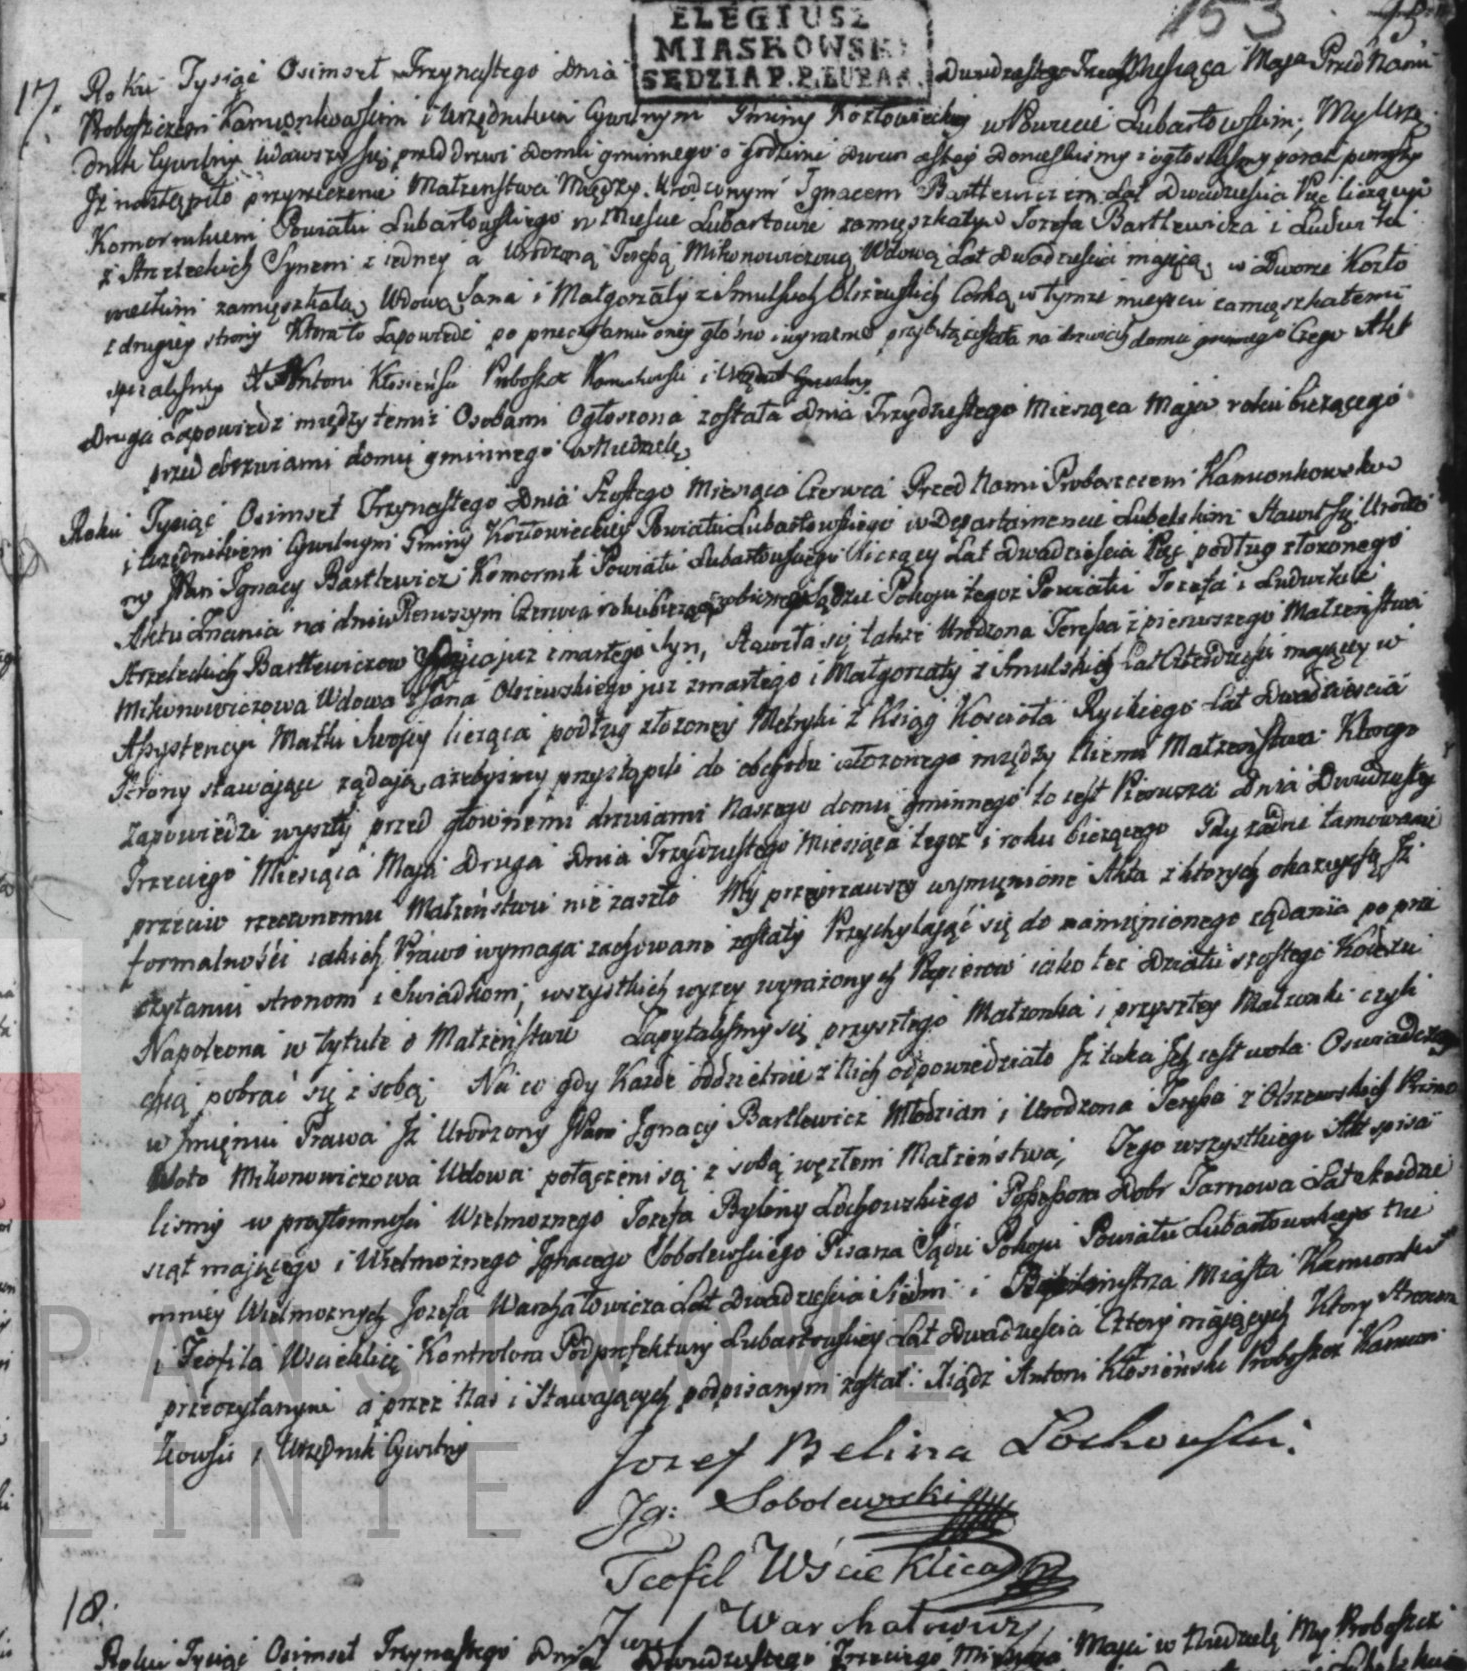 153
ELEGIUSZ
MIASKOWSKI
SĘDZIA P. P. LUBAR.
17. Roku Tysiąć Osimset Trzynastego Dnia Dwudzestego Trze Miesiąca Maja Przed Nami
Proboszczem Kamionkowskim i Urzędnikiem Cywilnym Gminy Kozłowieckiey w Powiecie Lubartowskim, My Urzę
dnik Cywilny udawszy się przed drzwi domu gminnego o godzinie dwunastey donieśliśmy i ogłosiliśmy poraz pierwszy
Jż nastąpiło przyrzeczenie Małzenstwa Między Urodzonym Jgnacem Bartlewiczem Lat Dwadzieścia Pięć liczącym
Komornikiem Powiatu Lubartowskiego w Mieście Lubartowie zamięszkałym Jozefa Bartlewicza i Ludwiki
z Strzeleckich Synem z iedney a Urodzoną Teressą Mikonowiczową Wdową Lat Dwadzieścia maiącą, w Dworze Kozło
wieckim zamięszkałą, Wdową Jana i Małgorzaty z Smulskich Olszewskich Corką w tymze mieyscu zamięszkałemi
z drugiey strony Ktora to Zapowiedź po przeczytaniu oney głośno i wyraznie przybitą została na drzwiach domu gminnego Czego Akt
spisalismy X Antoni Kłosieński Proboszcz Kamionkowski i Urzędnik Cywilny
Druga Zapowiedź między temiż Osobami Ogłoszona została Dnia Trzydziestego Miesiąca Maja roku bieżącego
przed drzwiami domu gminnego w Niedzielę
Roku Tysiąć Osimset Trzynastego Dnia Szostego Miesiąca Czerwca Przed Nami Proboszczem Kamionkowskim
i Urzędnikiem Cywilnym Gminy Kozłowieckiey Powiatu Lubartowskiego w Departamencie Lubelskim Stawił się Urodzo
ny Pan Jgnacy Bartlewicz Komornik Powiatu Lubartowskiego liczący Lat Dwadzieścia Pięć podług złozonego
Aktu Znania na dniu Pierwszym Czerwca roku bieżącego zrobionego w Sądzie Pokoju tegoż Powiatu Jozefa i Ludwiki z
Strzeleckich Bartlewiczow Oyca już zmarłego Syn, Stawiła się także Urodzona Teressa z pierwszego Małzeństwa
Mikonowiczowa Wdowa z Jana Olszewskiego już zmarłego i Małgorzaty z Smulskich Lat Czterdzieści maiącey w
Assystencyi Matki Swojey licząca podług złozoney Metryki z Ksiąg Kościoła Ryckiego Lat Dwadzieścia
Strony stawające żądają, ażebyśmy przystąpili do obchodu ułozonego między Niemi Małzeństwa Ktorego
Zapowiedzi wyszły przed głownemi drzwiami Naszego domu gminnego to iest Pierwsza Dnia Dwudziestego
Trzeciego Miesiąca Maja Druga Dnia Trzydziestego Miesiąca tegoż i roku bieżącego Gdy żadne tamowanie
przeciw rzeczonemu Małzeństwu nie zaszło My przeyrzawszy wymienione Akta z ktorych okazuje się Jż
formalności iakich Prawo wymaga zachowane zostały Przychylając się do namienionego żądania po prze
czytaniu stronom i Swiadkom, wszystkich wyzey wyrażonych Papierow iako też działu szostego Kodexu
Napoleona w tytule o Małzeństwie Zapytaliśmy się przyszłego Małzonka i przyszłey Małzonki czyli
chcą pobrać się z sobą Na co gdy Każde oddzielnie z Nich odpowiedziało Jż taka Jch iest wola Oswiadczamy
w Jmieniu Prawa Jż Urodzony Pan Jgnacy Bartlewicz Młodzian i Urodzona Teressa z Olszewskich Primo
Voto Mikonowiczowa Wdowa połączeni są z sobą węzłem Małzeństwa, Tego wszystkiego Akt spisa
liśmy w przytomności Wielmoznego Jozefa Byliny Lochowskiego Possessora Dobr Tarnowa Lat
siąt mającego i Wielmożnego Jgnacego Sobolewskiego Pisarza Sądu Pokoju Powiatu Lubartowskiego tu
mniey Wielmoznych Jozefa Warchałowicza Lat Dwadzieścia Siedm i Burmistrza Miasta Kamionki
i Teofila Wscieklicę Kontrolora Podprefektury Lubartowskiey Lat Dwadzieścia Cztery mających Ktory Stronom
przeczytanym a przez Nas i Stawających podpisanym został: Xiądz Antoni Kłosieński Proboszcz Kamion
kowski i Urzędnik Cywilny
Jozef Belina Lochowski
Jg: Sobolewski
Teofil Wścieklica
Jozef Warchałowicz
18.
Roku Tysiąć Osimset Trzynastego Dnia Dwudziestego Trzeciego Miesiąca Maja w Niedzielę My Proboszcz
PAŃSTWOWE
LINIE